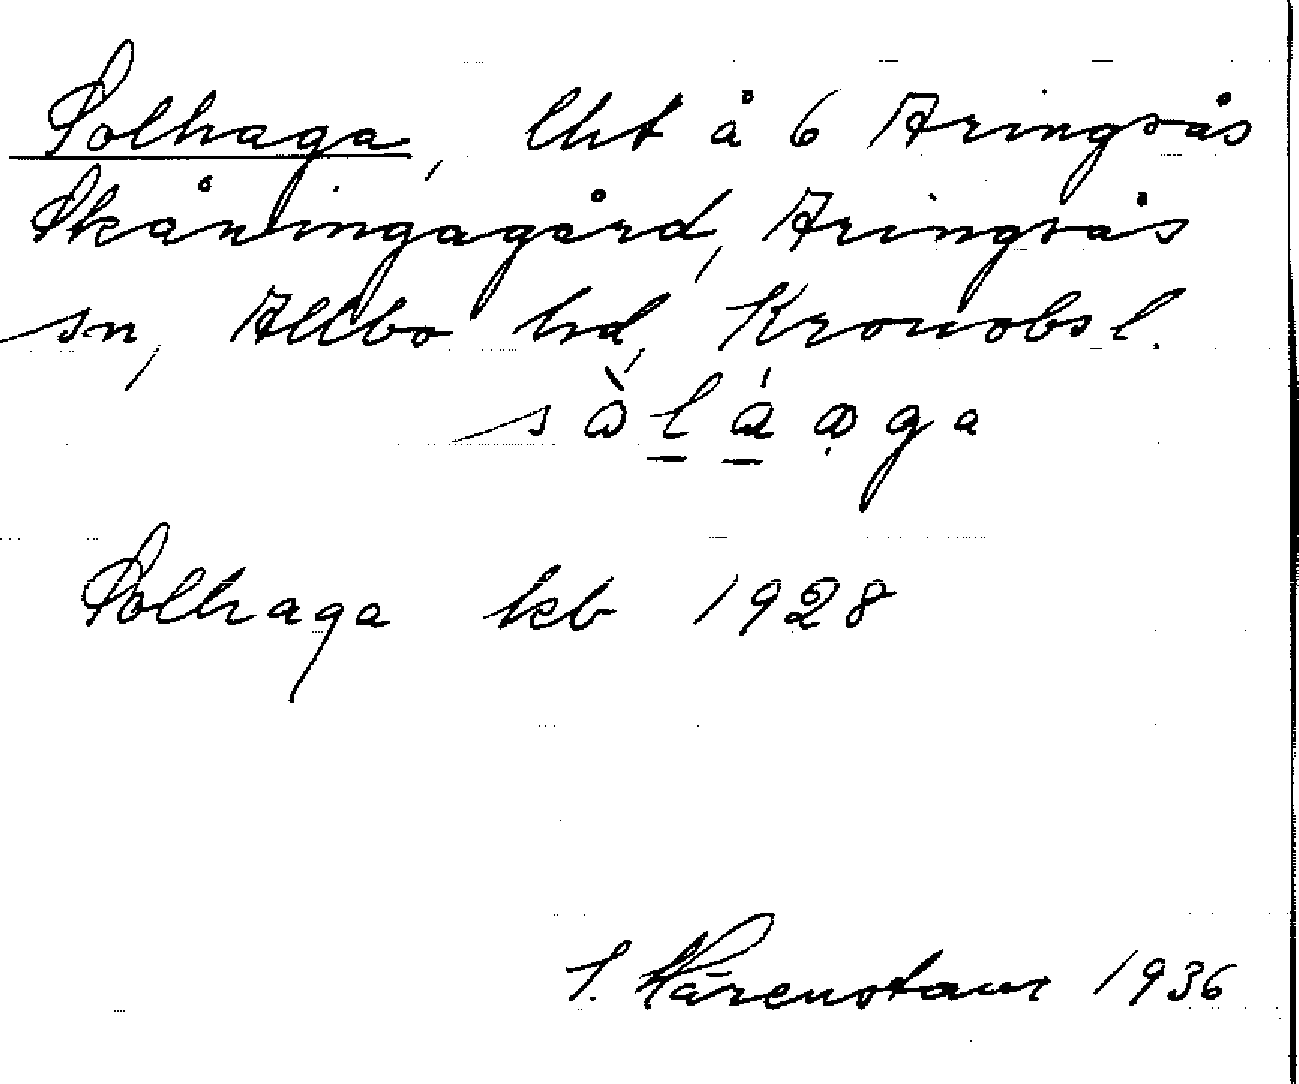 Solhaga, lht å 6 Aringsås
Skåningagård, Aringsås
sn, Allbo hd, Kronobs l.
Solhaga kb 1928
Härenstam 1936